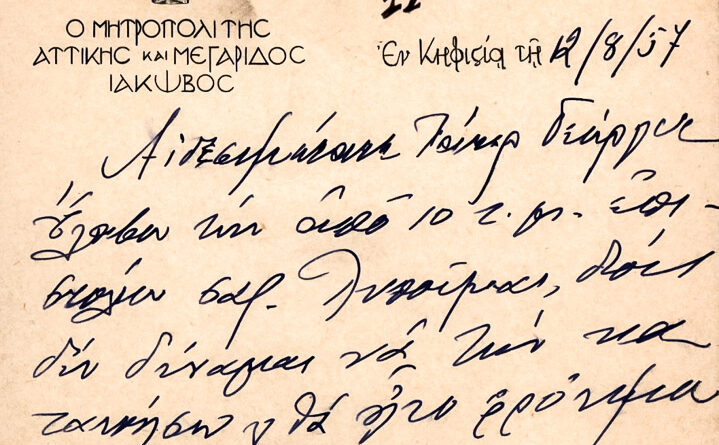 Ο ΜΗΤΡΟΠΟΛΙΤΗΣ
ΑΤΤΙΚΗΣ ΚΑΙ ΜΕΓΑΡΙΔΟΣ
ΙΑΚΩΒΟΣ
Ἐν Κηφισίᾳ τῇ 12/8/57
Αἰδεσιμώτατε Πάτερ Γεώργιε
Ἔλαβον τὴν ἀπὸ 10 τ. μ. ἐπι-
στολήν σας. Λυποῦμαι, διότι
δὲν δύναμαι νὰ τὴν
θὰ ἦτο